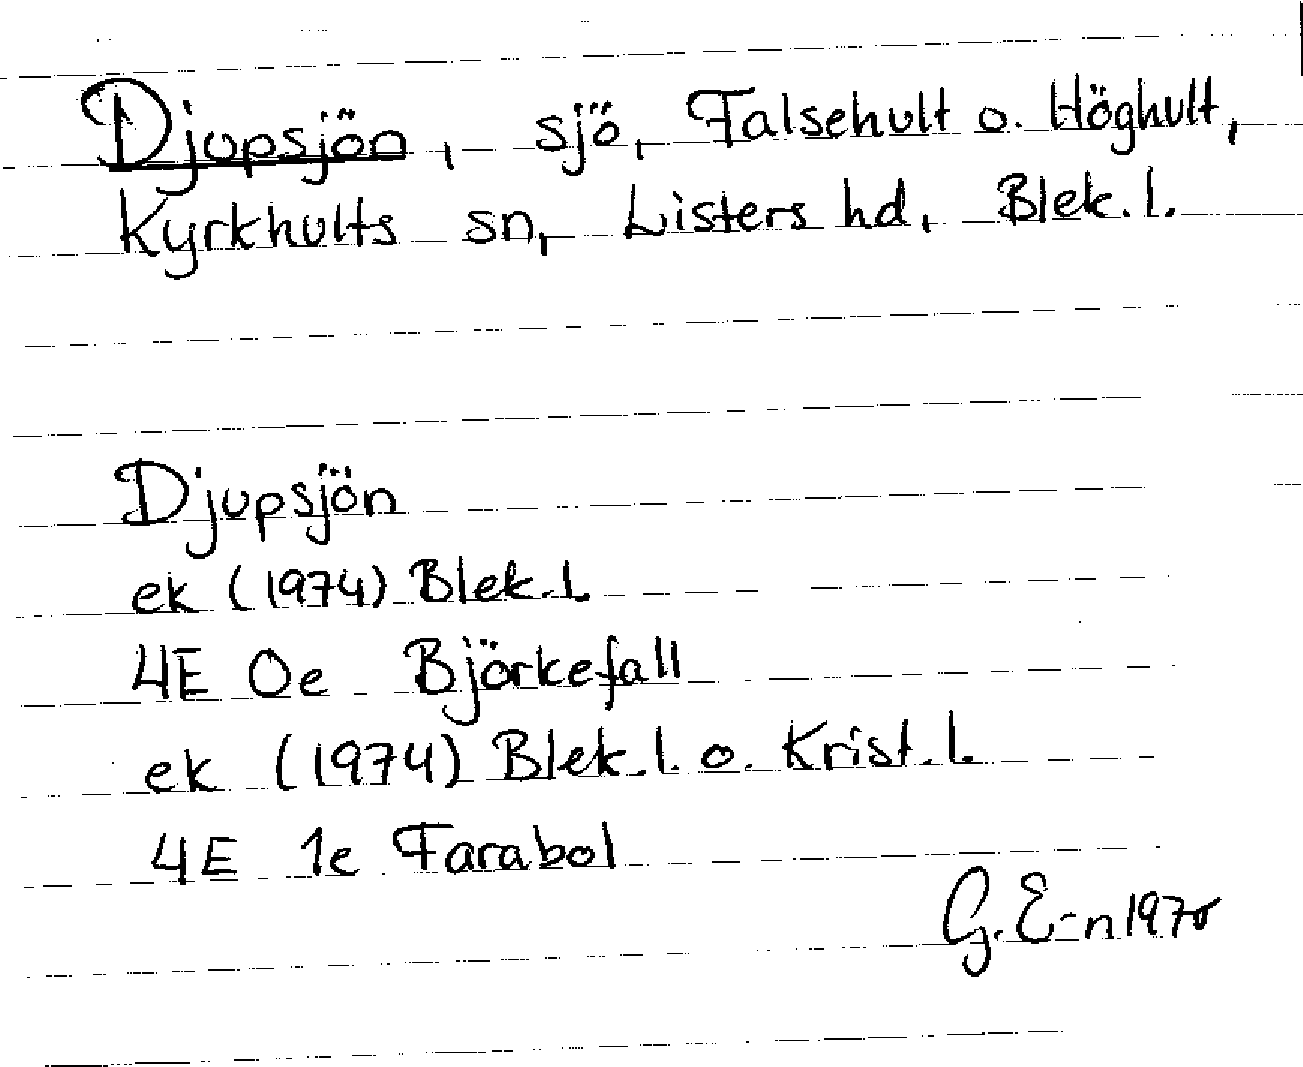 Djupsjön, sjö, Falsehult o. Höghult,
Kyrkhults sn, Listers hd, Blek. l.
Djupsjön
ek (1974) Blek. l.
4E 0e Björkefall
ek (1974) Blek. l. o. Krist. l.
4E 1e Farabol
G. E-n